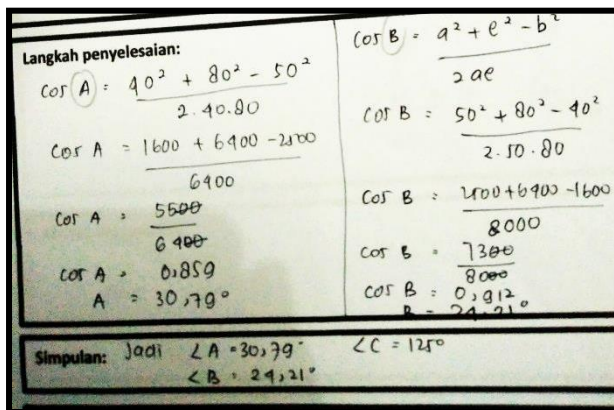 Langkah penyelesaian:
Cos A = 40² + 80² - 50²
2.40.80
Cos A = 1600 + 6400 - 2500
6400
Cos A = 5500
6400
Cos A = 0,859
A = 30,79°
Cos B = a² + c² - b²
2ac
Cos B = 50² + 80² - 40²
2.50.80
Cos B = 2500 + 6400 - 1600
8000
Cos B = 7300
8000
Cos B = 0,912
B = 24,21°
Simpulan: Jadi ∠A = 30,79° ∠C = 125°
∠B = 24,21°